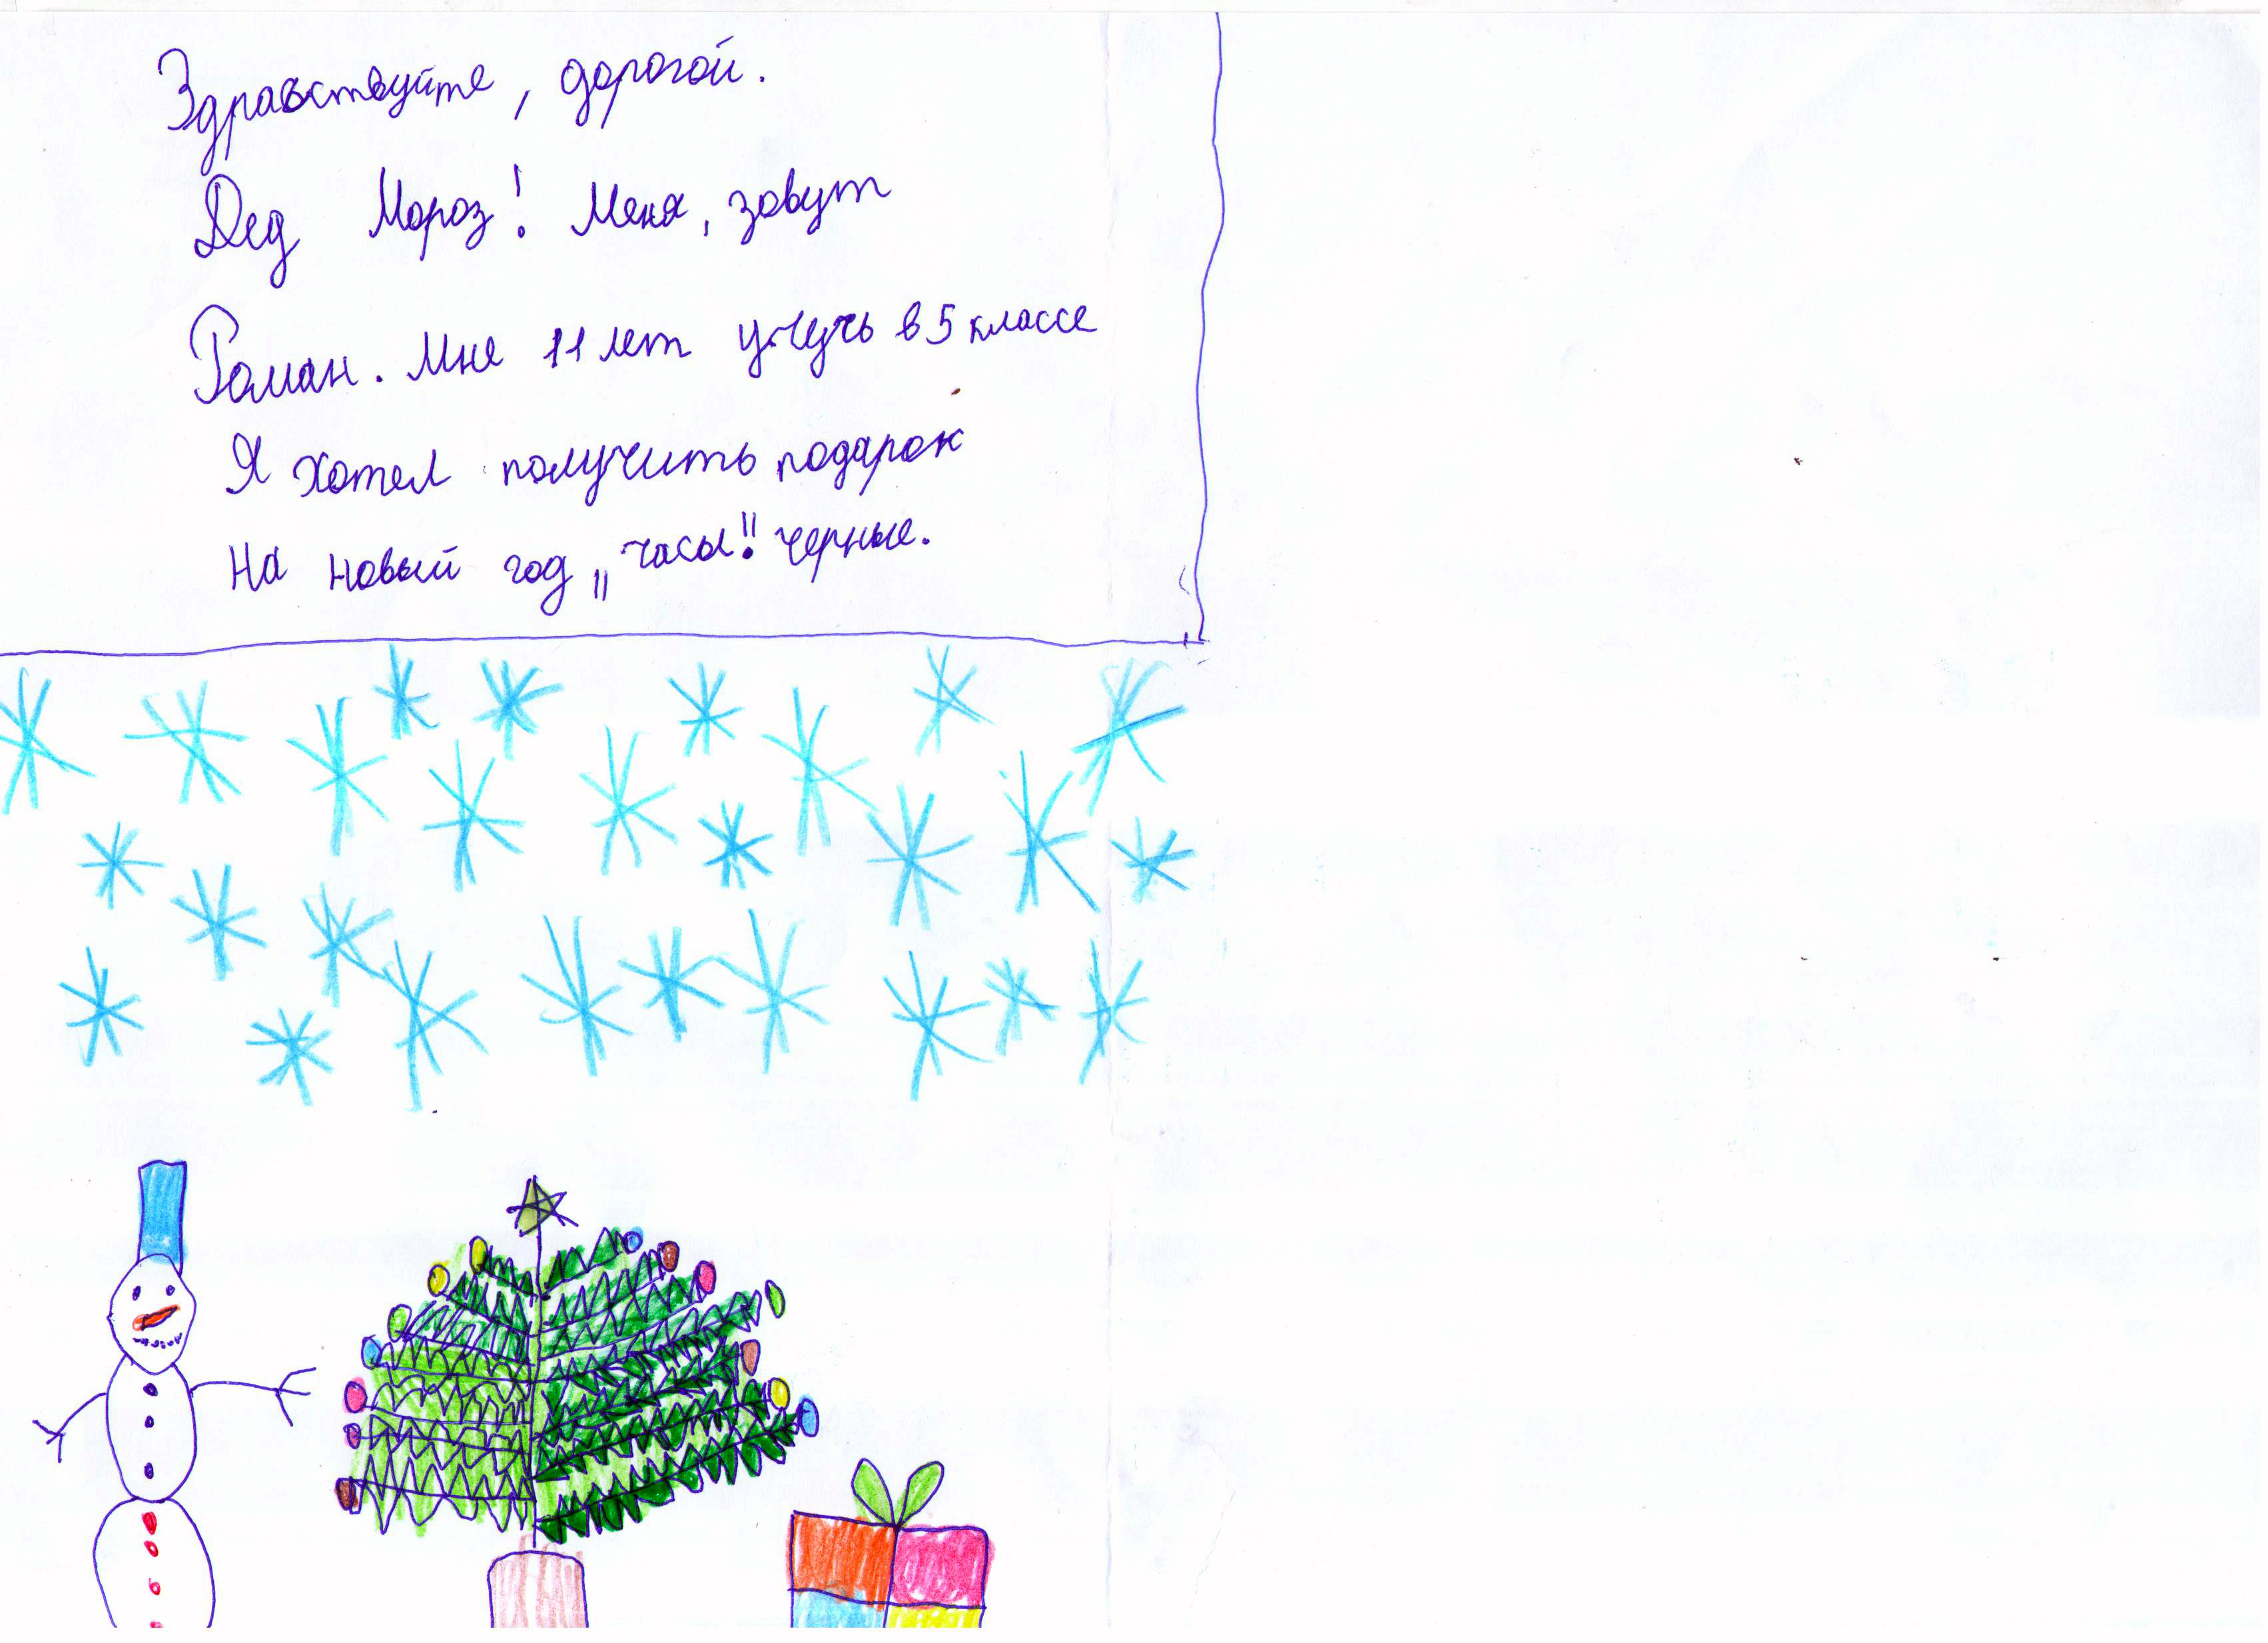 Здравствуйте, дорогой.
Дед Мороз! Меня, зовут
Роман. Мне 11 лет учучь в 5 классе
Я хотел получить подарок
На новый год „часы!“ черные.